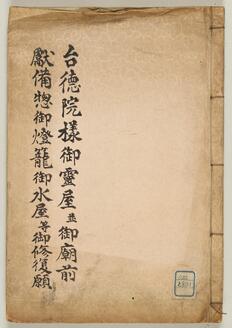 台德院樣御靈屋並御廟前
獻備惣御燈籠御水屋等御修復願